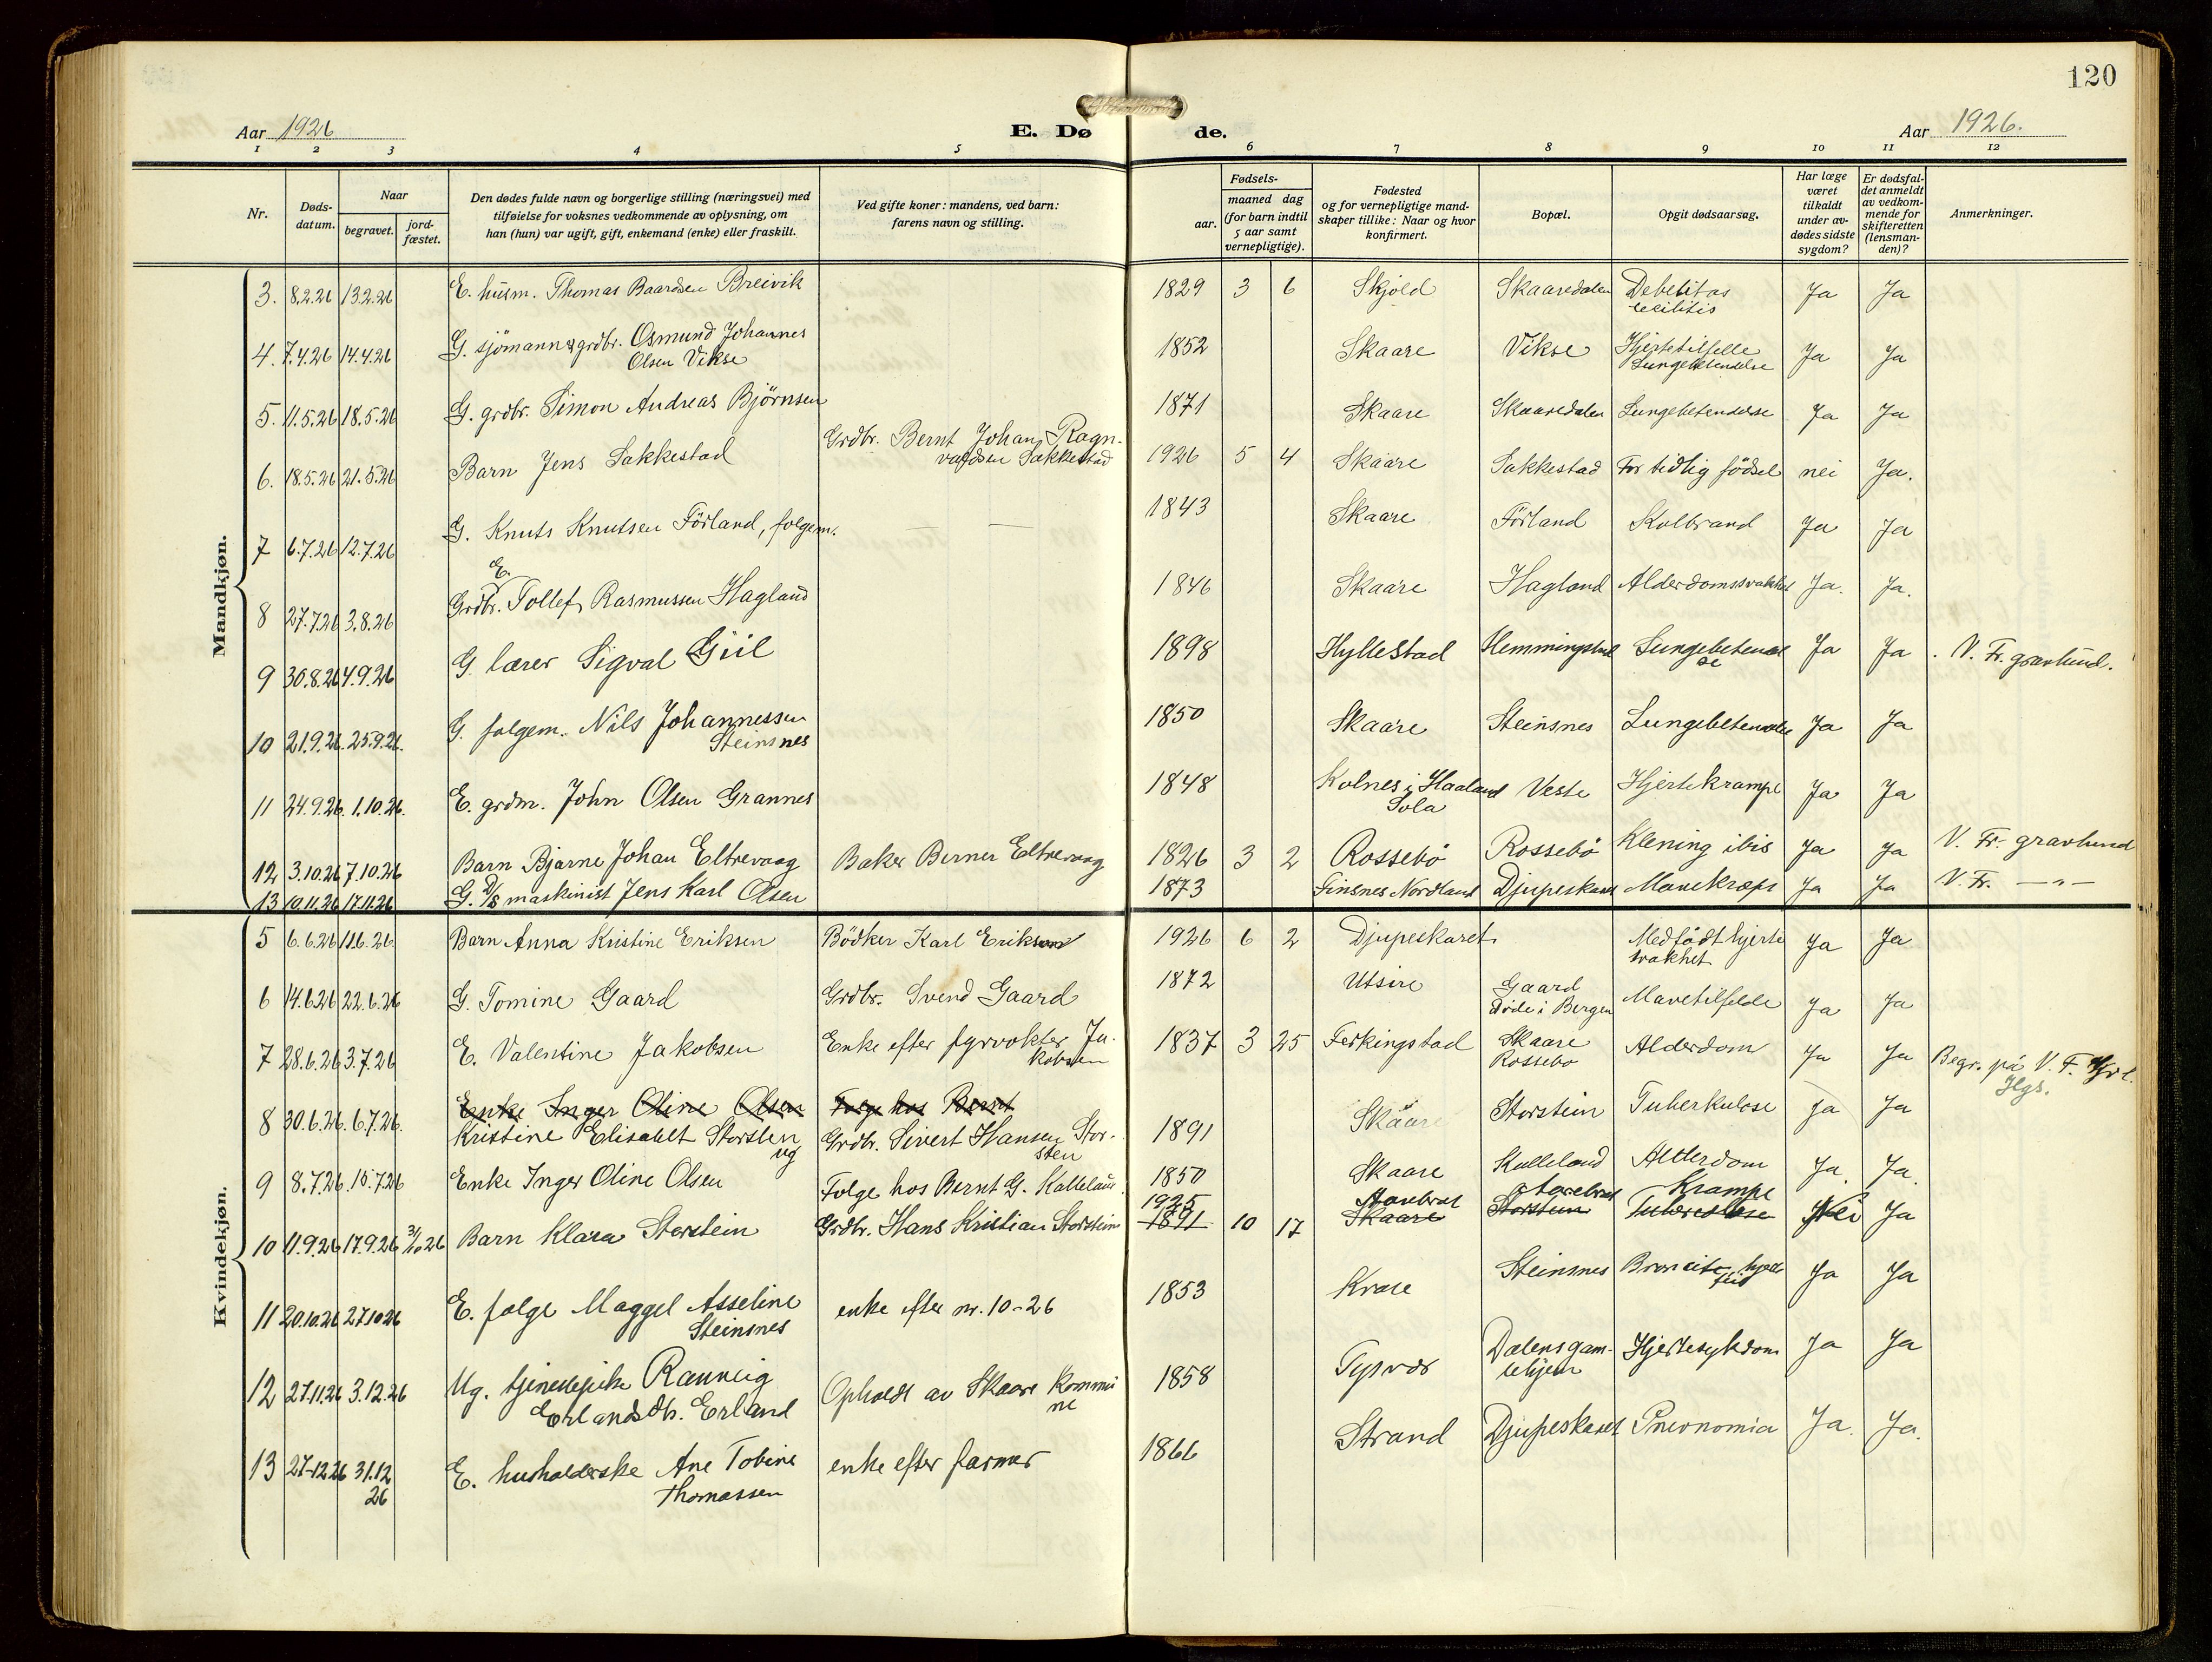 120
Aar 1926
E. Dø de.
Aar 1926.
1 2 3 4 5 6 7 8 9 10 11 12
Nr.
Døds-
datum.
Naar
begravet.
jord-
fæstet.
Den dødes fulde navn og borgerlige stilling (næringsvei) med
tilføielse for voksnes vedkommende av oplysning, om
han (hun) var ugift, gift, enkemand (enke) eller fraskilt.
Ved gifte koner: mandens, ved barn:
farens navn og stilling.
Fødsels-
aar.
maaned dag
(for barn indtil
5 aar samt
vernepligtige).
Fødested
og for vernepligtige mand-
skaper tillike: Naar og hvor
konfirmert.
Bopæl.
Opgit dødsaarsag.
Har læge
været
tilkaldt
under av-
dødes sidste
sygdom?
Er dødsfal-
det anmeldt
av vedkom-
mende for
skifteretten
(lensman-
den)?
Anmerkninger.
Mandkjøn.
3. 8.2.26 13.2.26 E. husm. Thomas Baardsen Breivik 1829 3 6 Skjold Skaaredalen Debelitas
Ja Ja
4. 7.4.26 14.4.26 G. sjömann & grdbr. Osmund Johannes
Olsen Vikse 1852 Skaare Vikse Hjertetilfelle
Lungebetendelse Ja Ja
5. 11.5.26 18.5.26 G. grdbr. Simon Andreas Björnsen 1871 Skaare Skaaredalen Lungebetendelse Ja Ja
6. 18.5.26 21.5.26 Barn Jens Sakkestad Grdbr. Bernt Johan Ragn-
valdsen Sakkestad 1926 5 4 Skaare Sakkestad For tidlig födsel nei Ja.
7 6.7.26 12.7.26 G. Knuts Knutsen Förland, folgem. — — 1843 Skaare Förland Kolbrand Ja Ja
8 27.7.26 3.8.26 E.
Grdbr. Tollef Rasmussen Hagland 1846 Skaare Hagland Alderdomssvakhet Ja. Ja.
9 30.8.26 4.9.26 G. lærer Sigval Giil 1898 Hyllestad Hemmingstad Lungebetendel
se Ja Ja . V. Fr. gravlund.
10 21.9.26. 25.9.26. G. folgem. Nils Johannessen
Steinsnes 1850 Skaare Steinsnes Lungebetendelse Ja Ja
11 24.9.26. 1.10.26. E. grdm. John Olsen Grannes 1848 Kolnes i Haaland
Sola Veste Hjertekrampe Ja Ja
12 3.10.26 7.10.26 Barn Bjarne Johan Eltrevaag Baker Berner Eltrevaag 1826 3 2 Rossebö Rossebö Klening ibis Ja Ja V. Fr. gravlund
13 10.11.26 17.11.26 G. D/S maskinist Jens Karl Olsen 1873 Finsnes Nordland Djupeskaret Mavekræft Ja Ja V. Fr. —"—
Kvindekjøn.
5 6.6.26 11.6.26. Barn Anna Kristine Eriksen Bödker Karl Eriksen 1926 6 2 Djupeskaret. Medfödt hjerte
svakhet Ja Ja
6 14.6.26 22.6.26 G. Tomine Gaard Grdbr. Svend Gaard 1872 Utsire Gaard
döde i Bergen Mavetilfelde Ja Ja
7 28.6.26 3.7.26 E. Valentine Jakobsen Enke efter fyrvokter Ja-
kobsen 1837 3 25 Ferkingstad Skaare
Rossebö Alderdom Ja Ja Begr. på V. F.
Hgs.
Enke Inger Oline Olsen Folge hos Bernt
8 30.6.26. 6.7.26. Kristine Elisabet Storsten
ug Grdbr. Sivert Hansen Stor-
sten 1891 Skaare Storstein Tuberkulose Ja Ja
9 8.7.26. 15.7.26 Enke Inger Oline Olsen Folge hos Bernt G. Kalleland 1850 Skaare Kalleland Allerdom
Krampe Ja. Ja.
10 11.9.26 17.9.26 31/10 26 Barn Klara Storstein Grdbr. Hans Kristian Storstein 1925
1891 10 17 Skaare Storstein Tuberculose Nei Ja
11 20.10.26 27.10.26 E. folge Maggel Asseline
Steinsnes enke efter nr. 10-26 1853 Steinsnes Ja Ja
12 27.11.26 3.12.26 Ug. tjenestepike Ranneig
Erlandsdtr. Erland Opholdt av Skaare Kommu
ne 1858 Tysvær Dalens gam-
lehjem Hjertesykdom Ja Ja
13 27-12.26 31.12
26 E. husholderske Ane Tobine
Thomassen enke efter farmer 1866 Strand Djupeskaret Pnevnomia Ja. Ja.